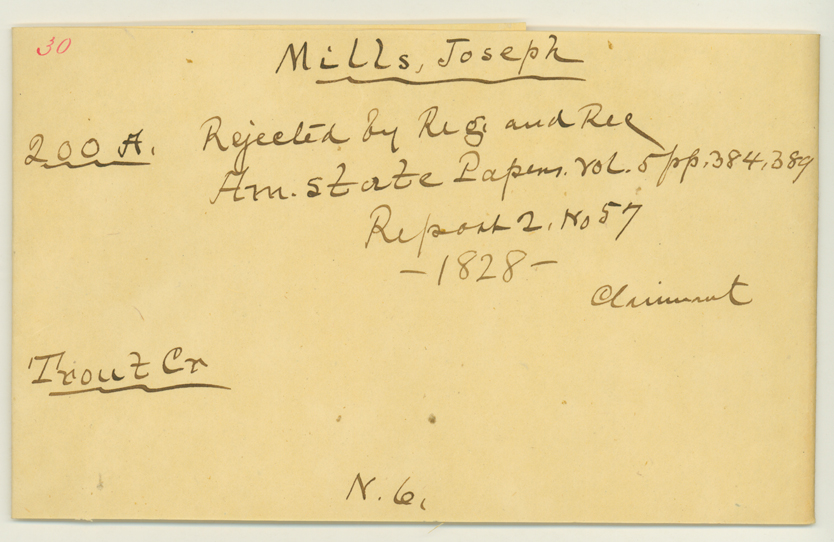 30
Mills, Joseph
200 A. Rejected by Reg. and Rec
Am. State Papers. vol. 5 pp. 384, 389
Report 2, No 57
-1828-
Claimant
Trout Cr
N. 6.